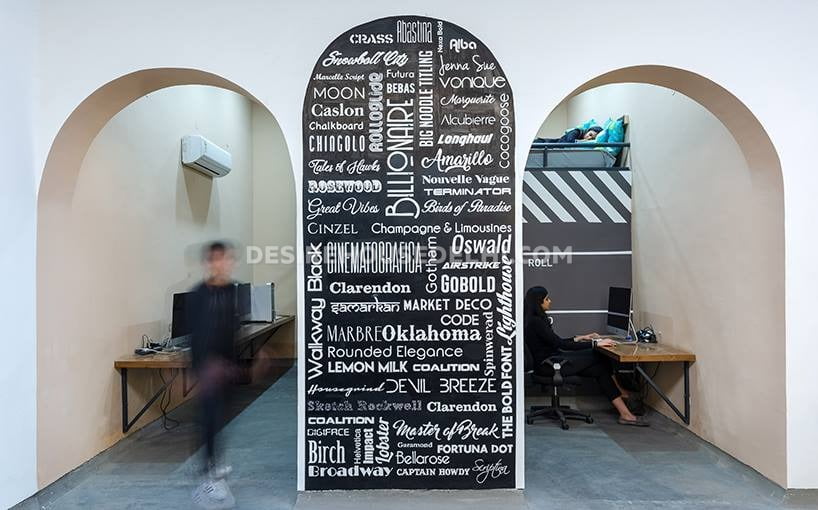 CRASS
Abastina
Nexa Bold
Alba
Snowboll City
Jenna Sue
Marcelle Script
Futura
VONIQUE
MOON
BEBAS
Marguerite
Caslon
ROLLOGLIDE
BILLIONAIRE
BIG NOODLE TITLING
Alcubierre
Cocogoose
Chalkboard
Longhaul
CHINGOLO
Tales of Hawks
Amarillo
ROSEWOOD
Nouvelle Vague
TERMINATOR
Great Vibes
Birds of Paradise
CINZEL
Champagne & Limousines
Walkway Black
CINEMATOGRAFICA
Gotham
Oswald
AIRSTRIKE
Clarendon
GOBOLD
Lighthouse
samarkan
MARKET DECO
CODE
MARBRE
Oklahoma
Spinwerad
Rounded Elegance
LEMON MILK
COALITION
THE BOLD FONT
Housegrind
DEVIL BREEZE
Sketch Rockwell
Clarendon
COALITION
DIGIFACE
Helvetica
Impact
Lobster
Master of Break
Birch
Garamond
FORTUNA DOT
Bellarose
Broadway
CAPTAIN HOWDY
Scriptina
ROLL